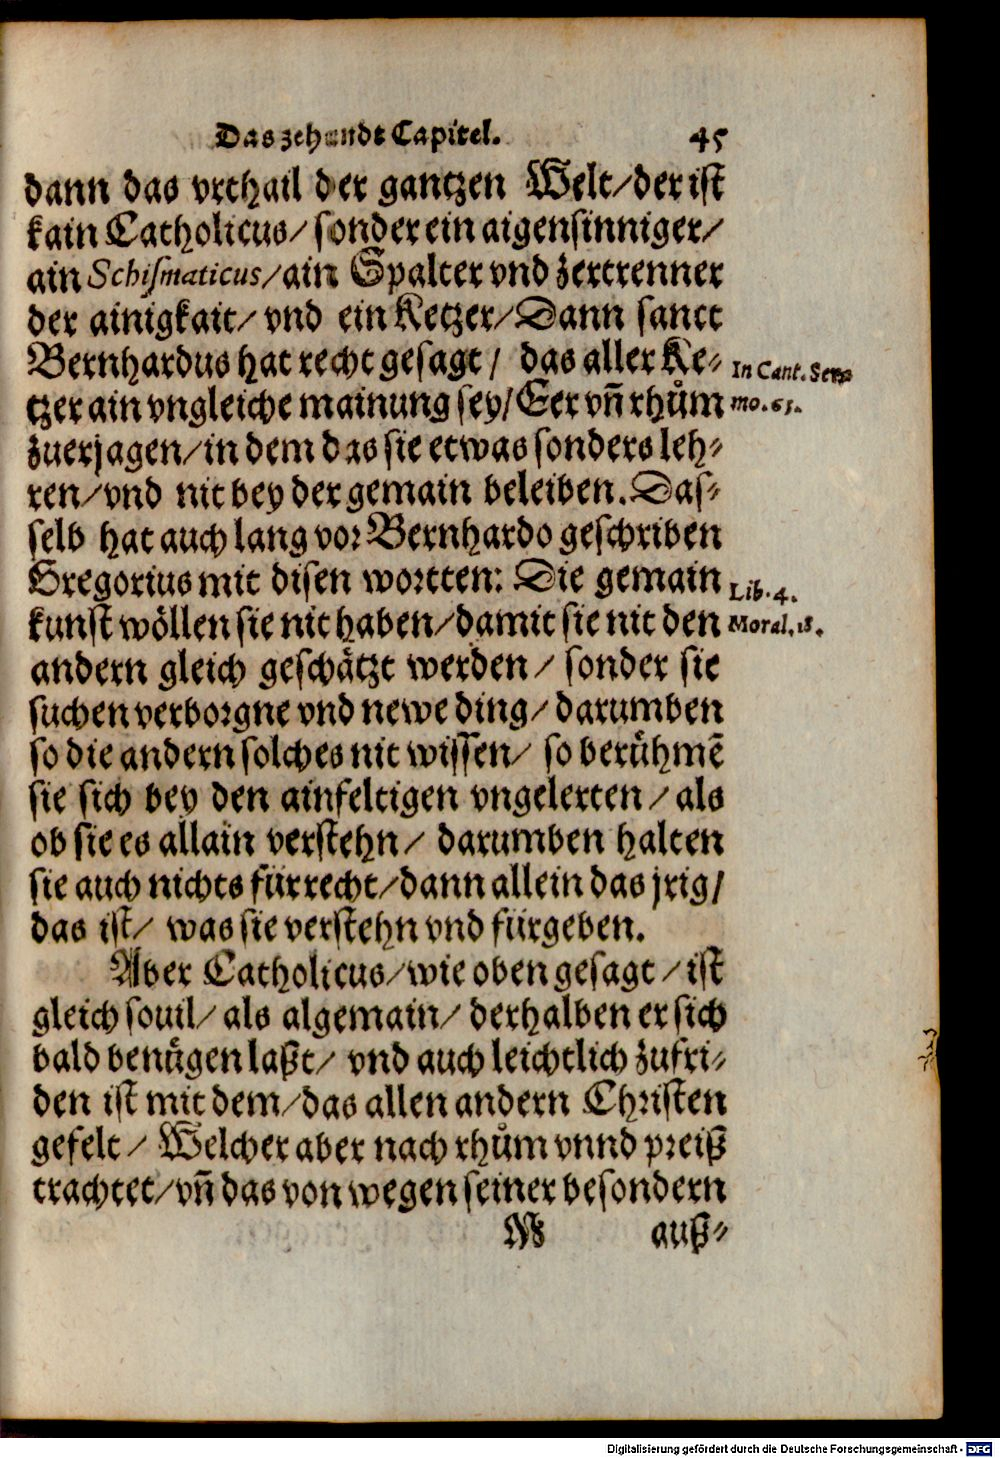 Das zehendt Capitel. 45
dann das vrthail der gantzen Welt/der ist
kain Catholicus/sonder ein aigensinniger/
ain Schismaticus/ain Spalter vnd zertrenner
der ainigkait/vnd ein Ketzer/Dann sanct
Bernhardus hat recht gesagt/ das aller Ke-
In Cant. Ser-
tzer ain vngleiche mainung sey/Eer vñ rhům
mo. 65.
zuerjagen/in dem das sie etwas sonders leh-
ren/vnd nit bey der gemain beleiben. Das-
selb hat auch lang vor Bernhardo geschriben
Gregorius mit disen wortten: Die gemain
Lib. 4.
kunst wöllen sie nit haben/damit sie nit den
Moral. 18.
andern gleich geschätzt werden/ sonder sie
suchen verborgne vnd newe ding/darumben
so die andern solches nit wissen/ so berůhmē
sie sich bey den ainfeltigen vngelerten/als
ob sie es allain verstehn/ darumben halten
sie auch nichts für recht/dann allein das jrig/
das ist/ was sie verstehn vnd fürgeben.
Aber Catholicus/wie oben gesagt/ist
gleich souil/als algemain/derhalben er sich
bald benůgen laßt/ vnd auch leichtlich zufri-
den ist mit dem/das allen andern Christen
gefelt/ Welcher aber nach rhům vnnd preiß
trachtet/vñ das von wegen seiner besondern
M auß-
Digitalisierung gefördert durch die Deutsche Forschungsgemeinschaft - DFG